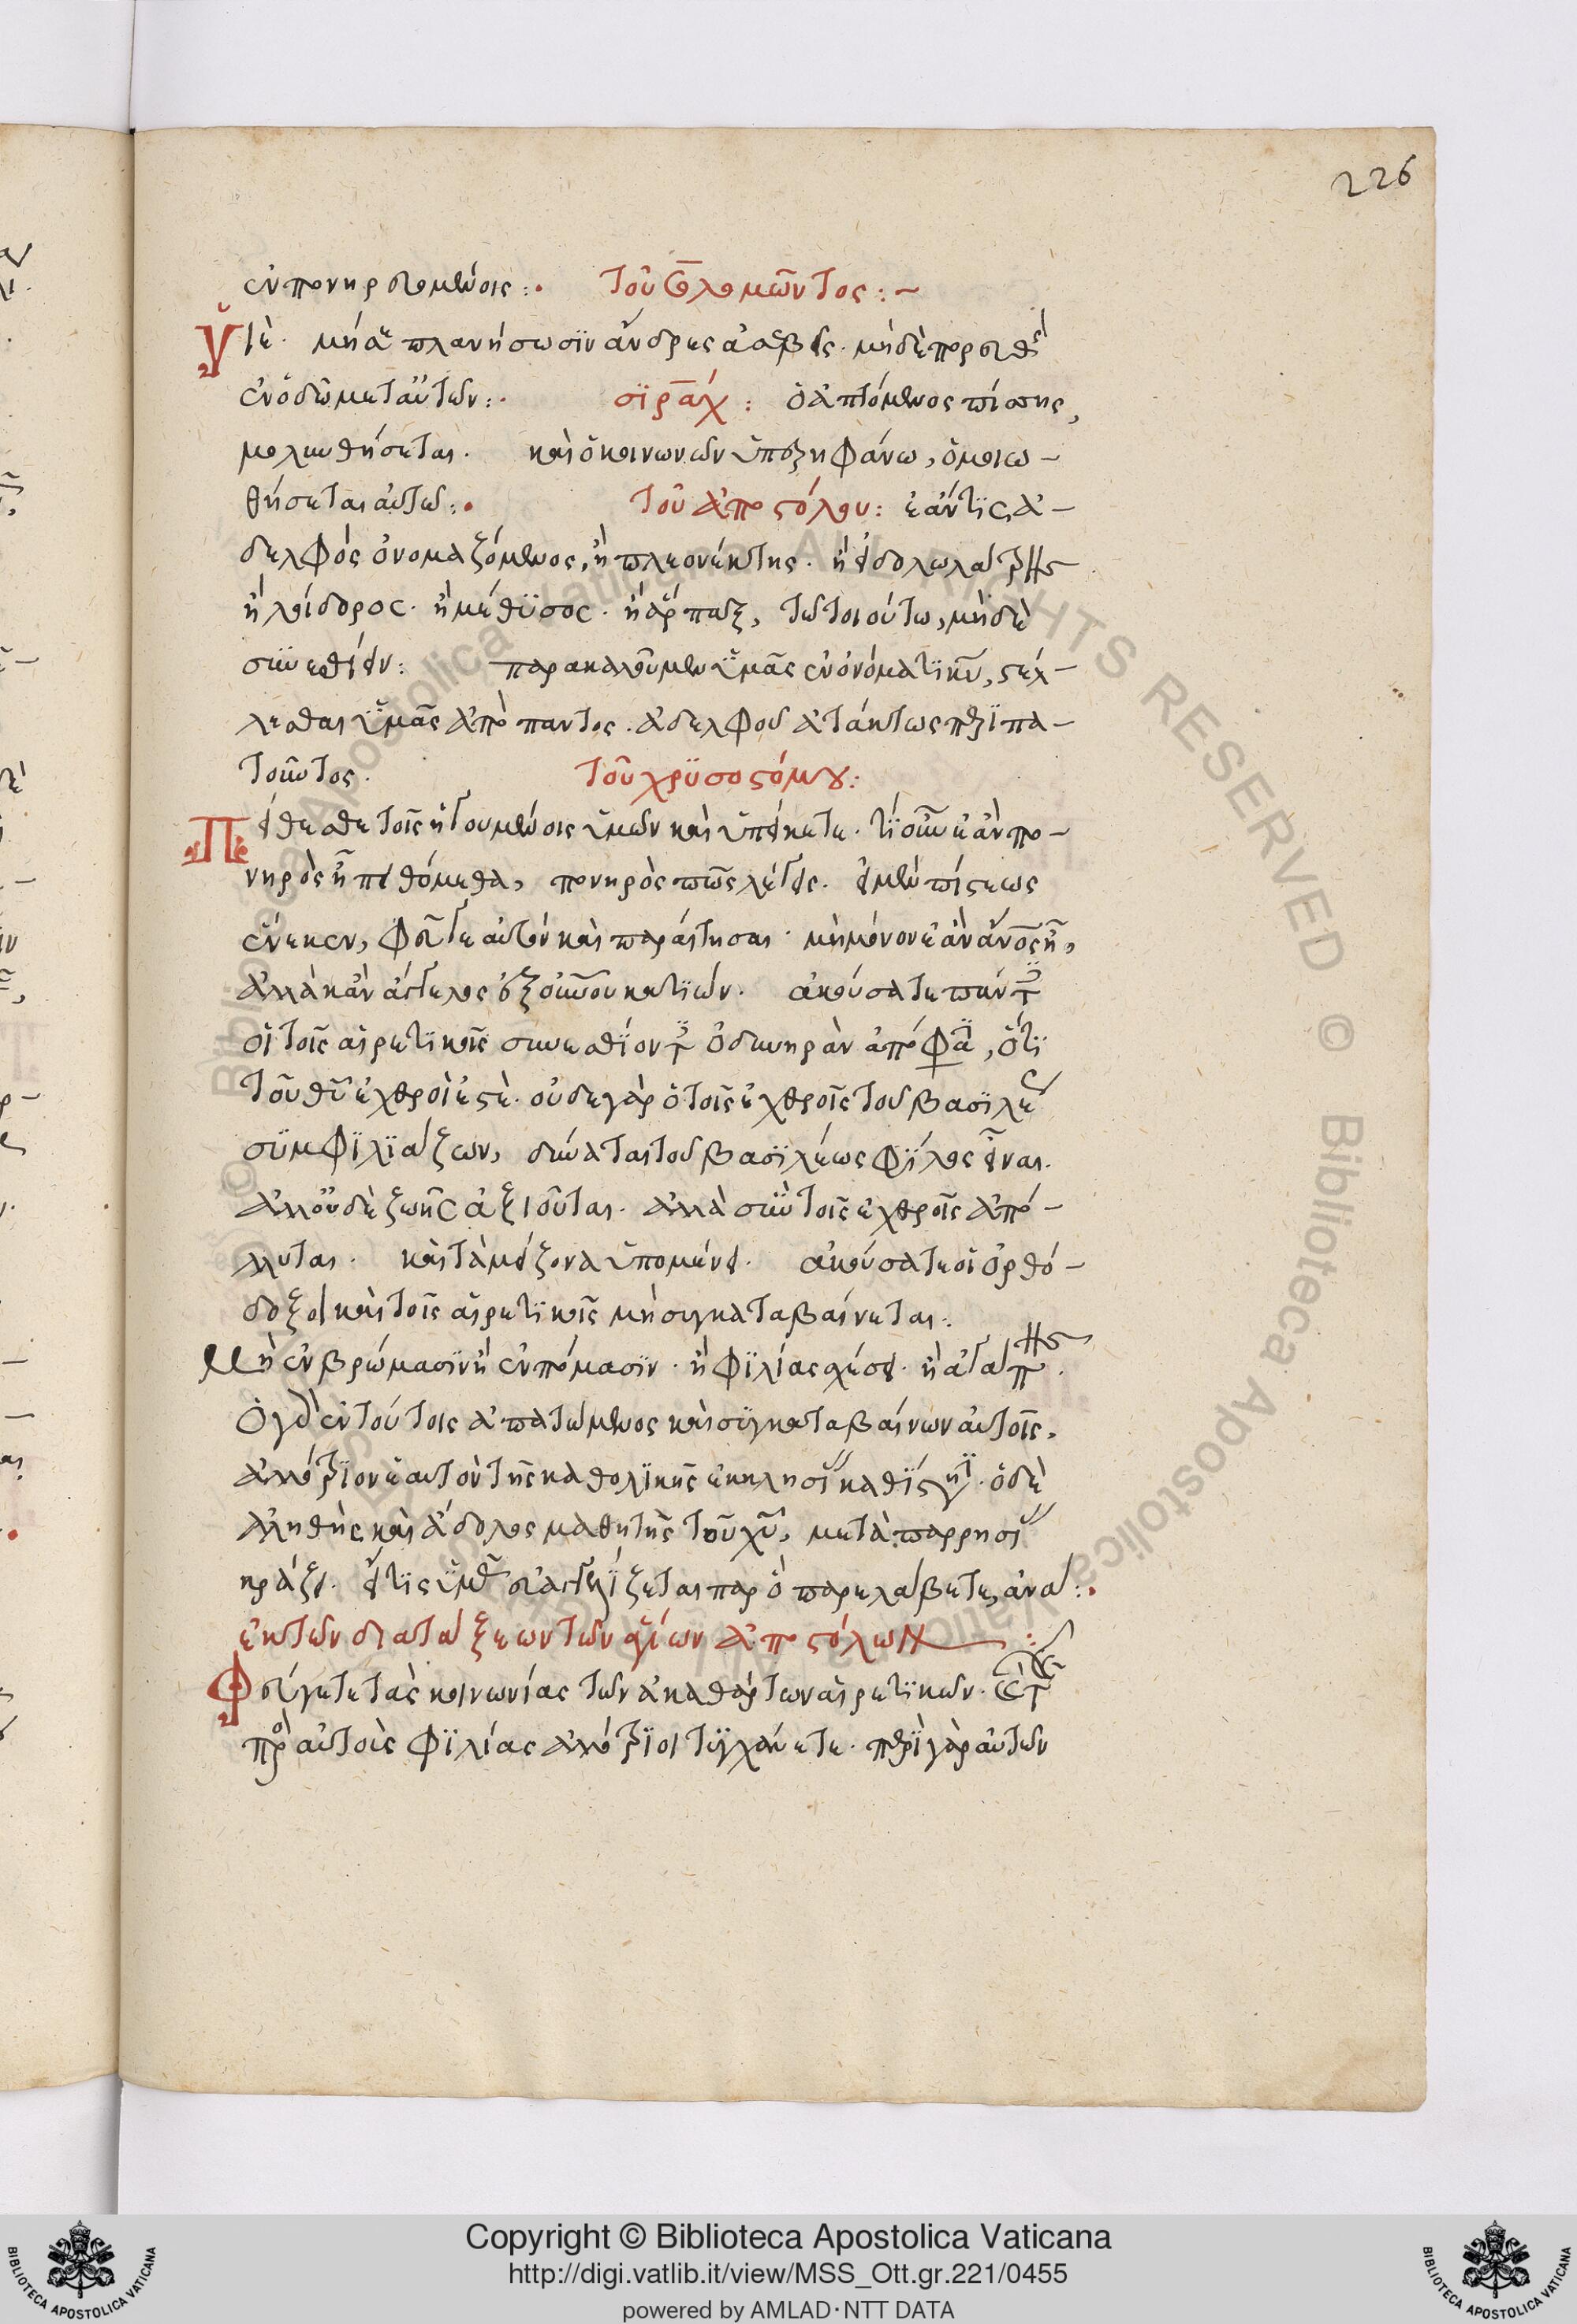 226
ἐν πονηρευομένοις :. Τοῦ Σολομῶντος :~
Υἱὲ. μή σε πλανήσωσϊν ἄνδρες ἀσεβεῖς. μὴ δὲ πορευθῇς
ἐν ὁδῶ μετ αὐτῶν :. σϊρὰχ : ὁ ἁπτόμενος πίσσης,
μολυνθήσεται. καὶ ὁ κοινωνῶν ὑπερηφάνω, ὁμοιω-
θήσεται αὐτῶ :. Τοῦ ἀποστόλου : ἐάν τϊς ἀ-
δελφὸς ὀνομαζόμενος, ἢ πλεονέκτης. ἢ εἰδολωλάτρης
ἢ λοίδορος. ἢ μέθϋσος. ἢ ἅρπαξ, τῶ τοιούτω, μὴ δὲ
συνεσθίειν : παρακαλοῦμεν ὑμᾶς ἐν ὀνόματϊ κυ, στέλ-
λεσθαι ὑμᾶς ἀπὸ παντος. ἀδελφοῦ ἀτάκτως περϊπα-
τοῦντος. Τοῦ χρϋσοστόμου :
Πείθεσθε τοῖς ἡγουμένοις ὑμῶν καὶ ὑπείκετε. τί οὖν ἐὰν πο-
νηρὸς ἦ πειθόμεθα, πονηρὸς πῶς λέγεις. εἰ μὲν πίστεως
ἕνεκεν, φεῦγε αὐτὸν καὶ παραίτησαι. μὴ μόνον ἐὰν ἄνος ἦ,
ἀλλὰ κἂν ἄγγελος ἐξ οὐνου κατϊών. ἀκούσατε πάντες
οἱ τοῖς αἱρετϊκοῖς συνεσθίοντες ὀδυνηρὰν ἀπόφασϊν, ὅτϊ
τοῦ θυ ἐχθροὶ ἐστὲ. οὐδε γὰρ ὁ τοῖς ἐχθροῖς τοῦ βασϊλέως
σϋμφϊλϊάζων, δύναται τοῦ βασϊλέως φϊλος εἶναι.
ἀλλ οὐδὲ ζωῆς ἀξιοῦται. ἀλλὰ σὺν τοῖς ἐχθροῖς ἀπό-
λλυται. καὶ τὰ μείζονα ὑπομένει. ἀκούσατε οἱ ὀρθό-
δοξοι καὶ τοῖς αἱρετϊκοῖς μὴ συγκαταβαίνεται.
Μὴ ἐν βρώμασϊν ἢ ἐν πόμασϊν. ἢ φϊλίας χέσει. ἢ ἀγάπης.
Ὁ γὰρ ἐν τούτοις ἀπατώμενος καὶ σϋγκαταβαίνων αὐτοῖς,
ἀλλότρϊον ἑαυτὸν τῆς καθολϊκῆς ἐκκλησίας καθϊστησϊ. ὁ δὲ
ἀληθὴς καὶ ἄδολος μαθητὴς τοῦ χυ, μετὰ παρρησίας
κράζει. εἴ τϊς ὑμᾶς εὐαγγελίζεται παρ ὃ παρελάβετε, ἀνα :.
ἐκ τῶν διατάξεων τῶν ἁγίων ἀποστόλων :
Φεύγετε τὰς κοινωνίας τῶν ἀκαθάρτων αἱρετϊκῶν. καὶ τῆς
πρὸς αὐτοὺς φϊλίας ἀλλότρϊοι τϋγχάνετε. περϊ γὰρ αὐτῶν
Copyright © Biblioteca Apostolica Vaticana
http://digi.vatlib.it/view/MSS_Ott.gr.221/0455
powered by AMLAD·NTT DATA